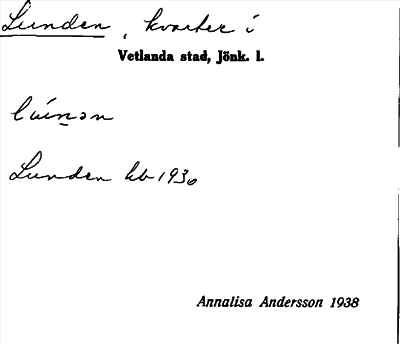 Lunden, kvarter i
Vetlanda stad, Jönk. l.
Lunden kb 1930
Annalisa Andersson 1938